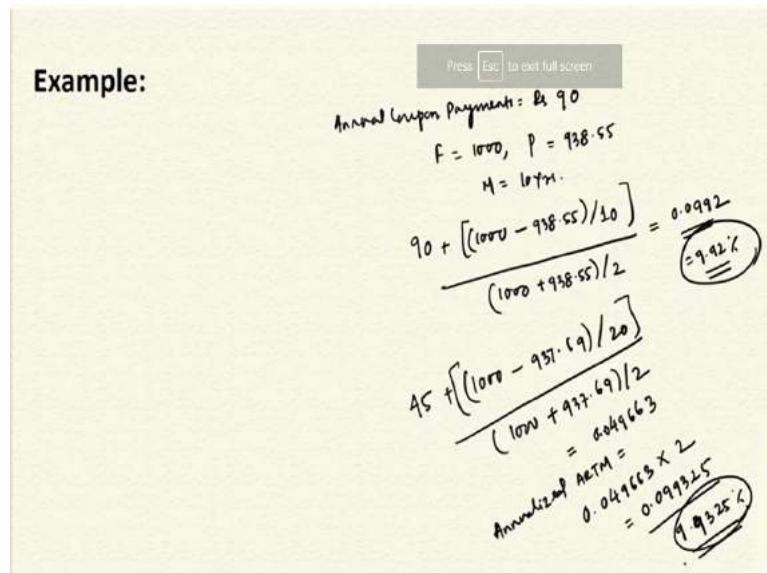 Press Esc to exit full screen
Example:
Annual Coupon Payments: Rs 90
F = 1000, P = 938.55
M = 10 Yrs.
90 + [(1000 - 938.55)/10]
(1000 + 938.55)/2
= 0.0992
= 9.92%
45 + [(1000 - 937.69)/20]
(1000 + 937.69)/2
= 0.049663
Annualized ARTM =
0.049663 × 2
= 0.099325
9.9325%